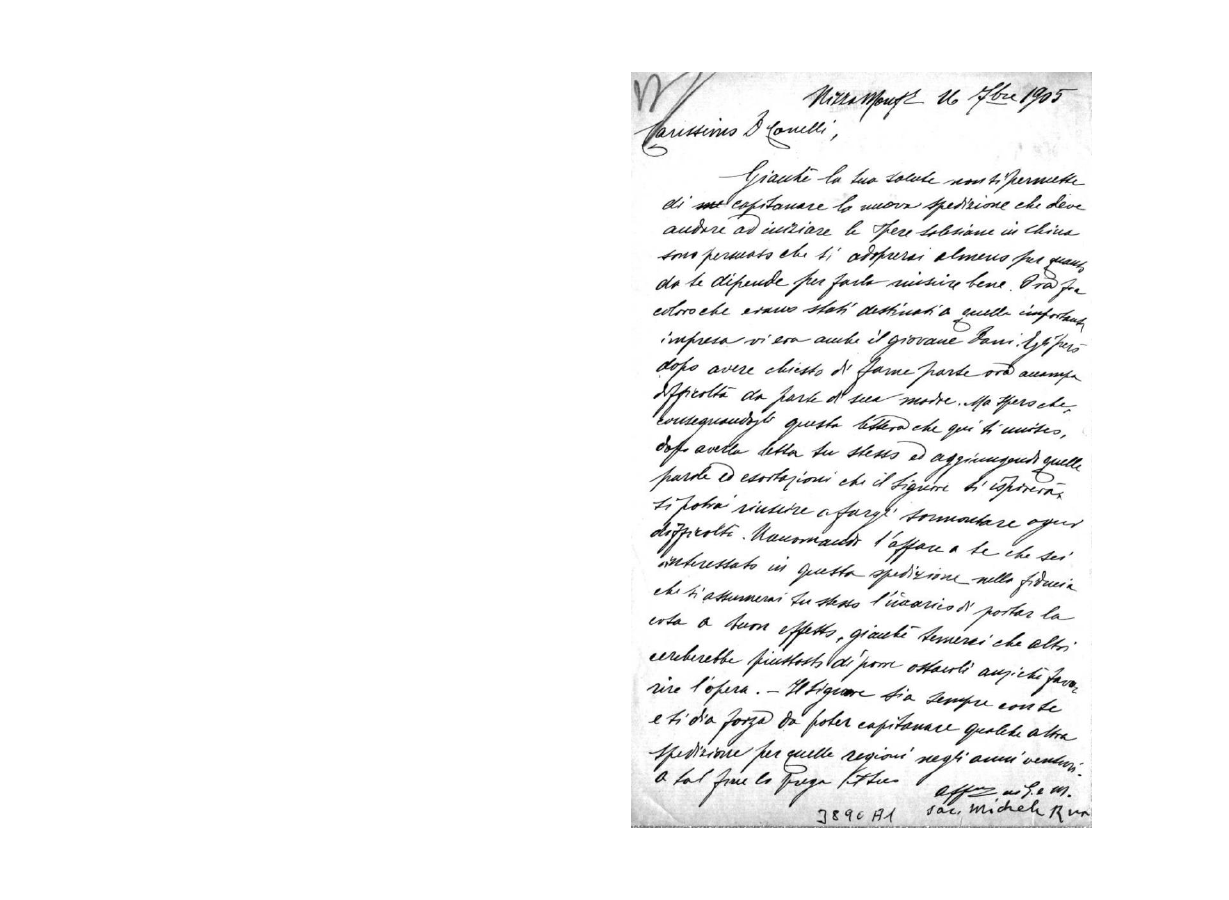 Nizza Monf. 16 7bre 1905
Carissimo D Canelli,
Giacchè la tua salute non ti permette
di me capitanare la nuova spedizione che deve
andare ad iniziare le Opere Salesiane in China
sono persuaso che ti adoprerai almeno per quanto
da te dipende per farla riuscire bene. Ora fra
coloro che erano stati destinati a quella importante
impresa vi era anche il giovane Fani. Egli però
dopo avere chiesto di farne parte ora accampa
difficoltà da parte di sua madre. Ma spero che,
consegnandogli questa lettera che qui ti unisco,
dopo averla letta tu stesso ed aggiungendo quelle
parole ed esortazioni che il Signore ti ispirerà,
ti potrai riuscire a fargli sormontare ogni
difficoltà. Raccomando l'affare a te che sei
interessato in questa spedizione nella fiducia
che ti assumerai tu stesso l'incarico di portar la
cosa a buon effetto, giacchè temerei che altri
cercherebbe piuttosto di porre ostacoli anzichè favo-
rire l'opera. – Il Signore sia sempre con te
e ti dia forza da poter capitanare qualche altra
spedizione per quelle regioni negli anni venturi.
A tal fine lo prega il tuo
aff in G. e M.
Sac. Michele Rua
3890 A1